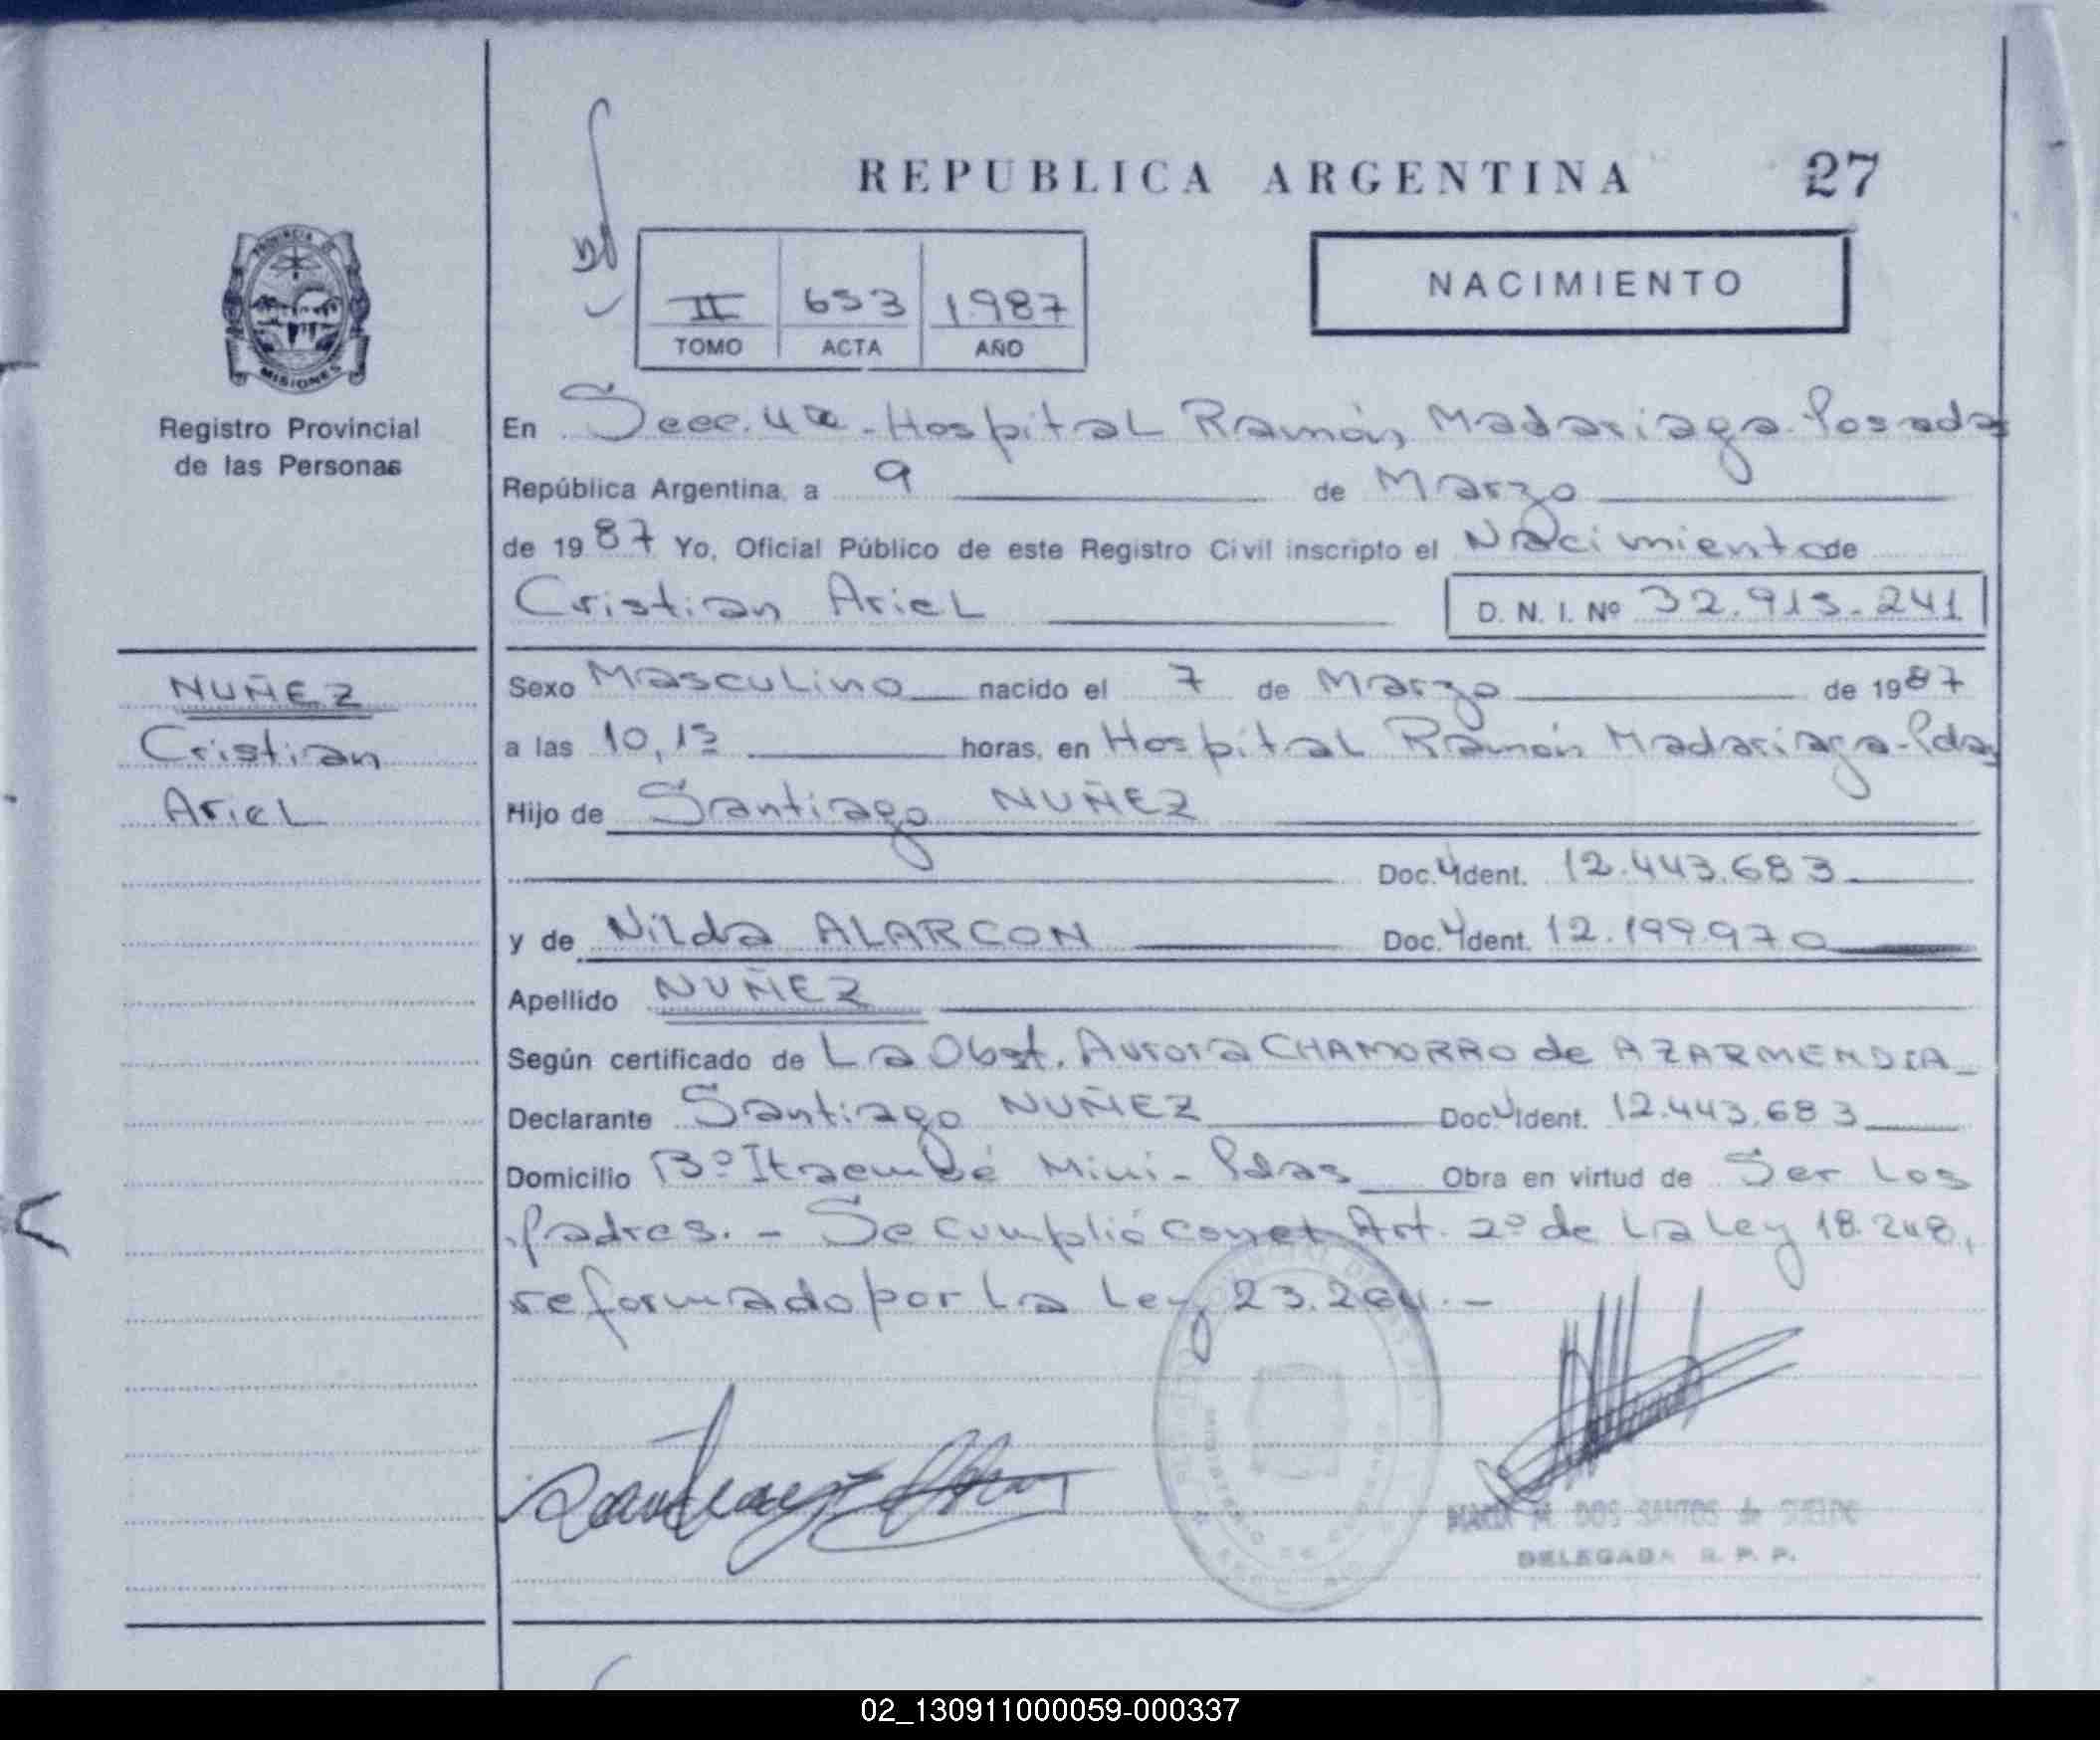 REPUBLICA ARGENTINA 27
NACIMIENTO
II 653 1.987
TOMO ACTA AÑO
PROVINCIA DE
MISIONES
Registro Provincial
de las Personas
En Secc. 4ta - Hospital Ramón Madariaga - Posadas
República Argentina, a 9 de Marzo
de 1987 Yo, Oficial Público de este Registro Civil inscripto el Nacimiento de
Cristian Ariel D. N. I. Nº 32.915.241
NUÑEZ
Cristian
Ariel
Sexo Masculino nacido el 7 de Marzo de 1987
a las 10,15 horas, en Hospital Ramón Madariaga - Pdas
Hijo de Santiago NUÑEZ
Doc. Ident. 12.443.683
y de Nilda ALARCON Doc. Ident. 12.199.970
Apellido NUÑEZ
Según certificado de La Obst. Aurora CHAMORRO de AZARMENDIA
Declarante Santiago NUÑEZ Doc. Ident. 12.443.683
Domicilio Bº Itaembé Miní - Pdas Obra en virtud de Ser los
padres. - Se cumplió con el Art. 2º de La Ley 18.248,
reformado por La Ley 23.264. -
M. DOS SANTOS de
DELEGADA R. P. P.
02_130911000059-000337